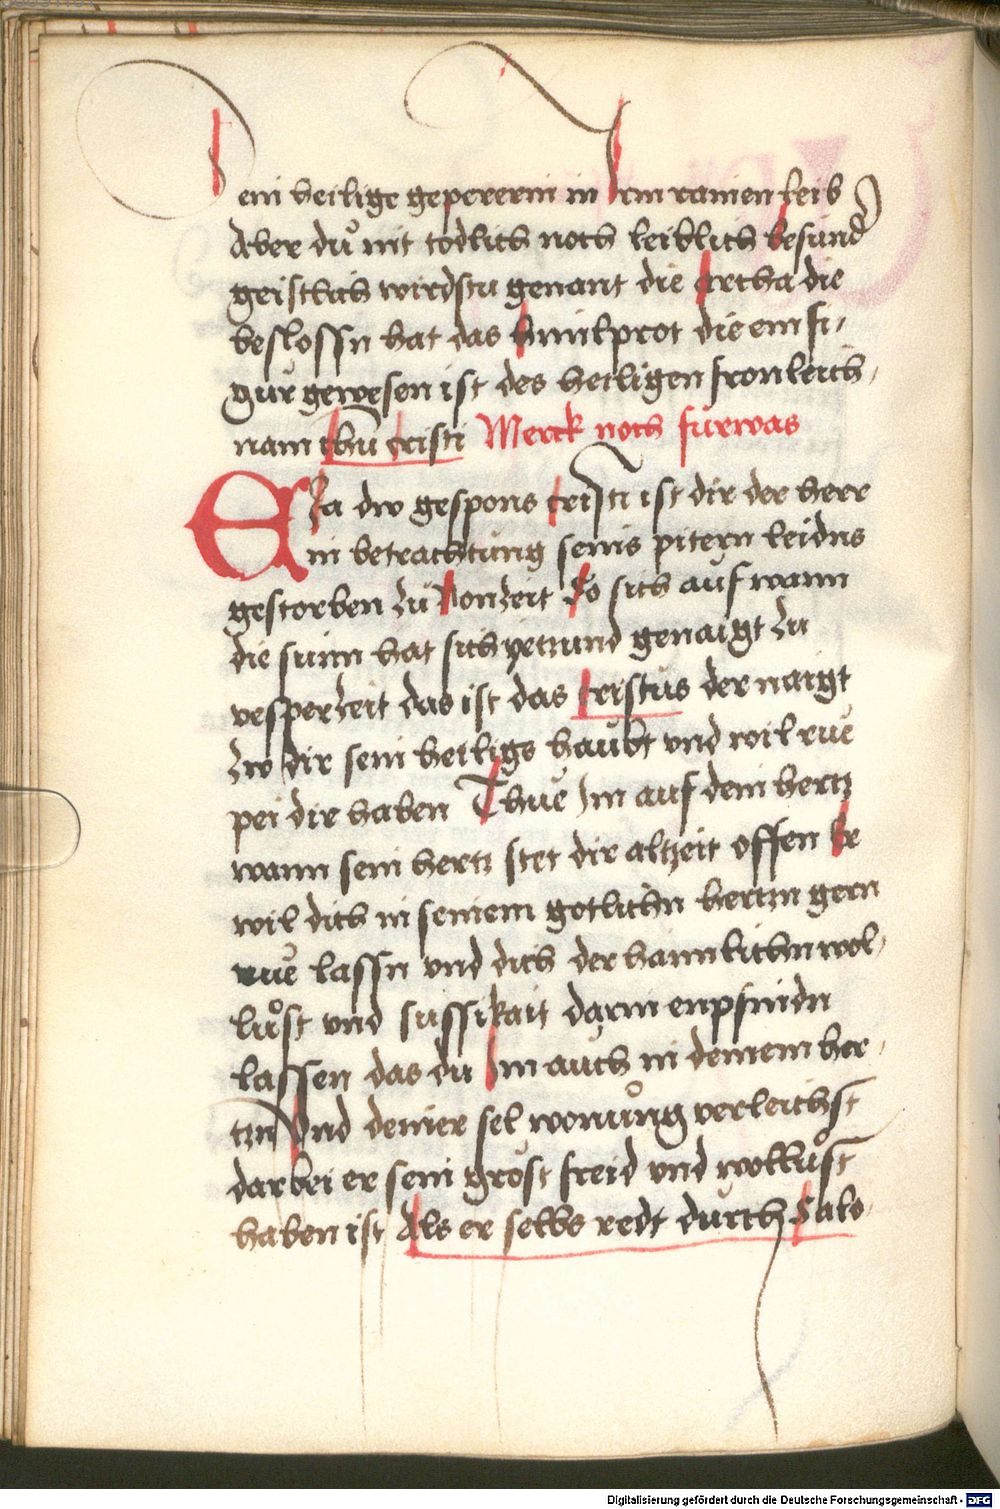 Sein heilige gepererin in Irm rainen Leib
Aber dů nit todlich noch leiblich besund
geistlich wirdstu genant die archa die
beslossn hat das himlprot die ein fi-
gur gewesen ist des heiligen fronleich-
nam ihū cristi Merck noch fürwas
Eia dw gespons cristi ist dir der herr
in betrachtung seins pitern leidns
gestorben zu Nonzeit So sich auf wann
die sunn hat sich yetzund genaigt zu
vesperzeit das ist das cristus der naigt
zw dir sein heiligs haubt vnd wil rue
pei dir haben Thue Im auf dein hertz
wann sein hertz stet dir altzeit offen Er
wil dich in seinem gotlichn hertzn gern
rue lassn vnd dich der haimlichn wol-
lůst vnd sussikait darin enpfindn
lassen das du Im auch in deinem her-
tzn Vnd deiner sel wonůng verleichst
darbei er sein grost freid vnd wollůst
haben ist Als er selbs redt durch Salo-
Digitalisierung gefördert durch die Deutsche Forschungsgemeinschaft - DFG